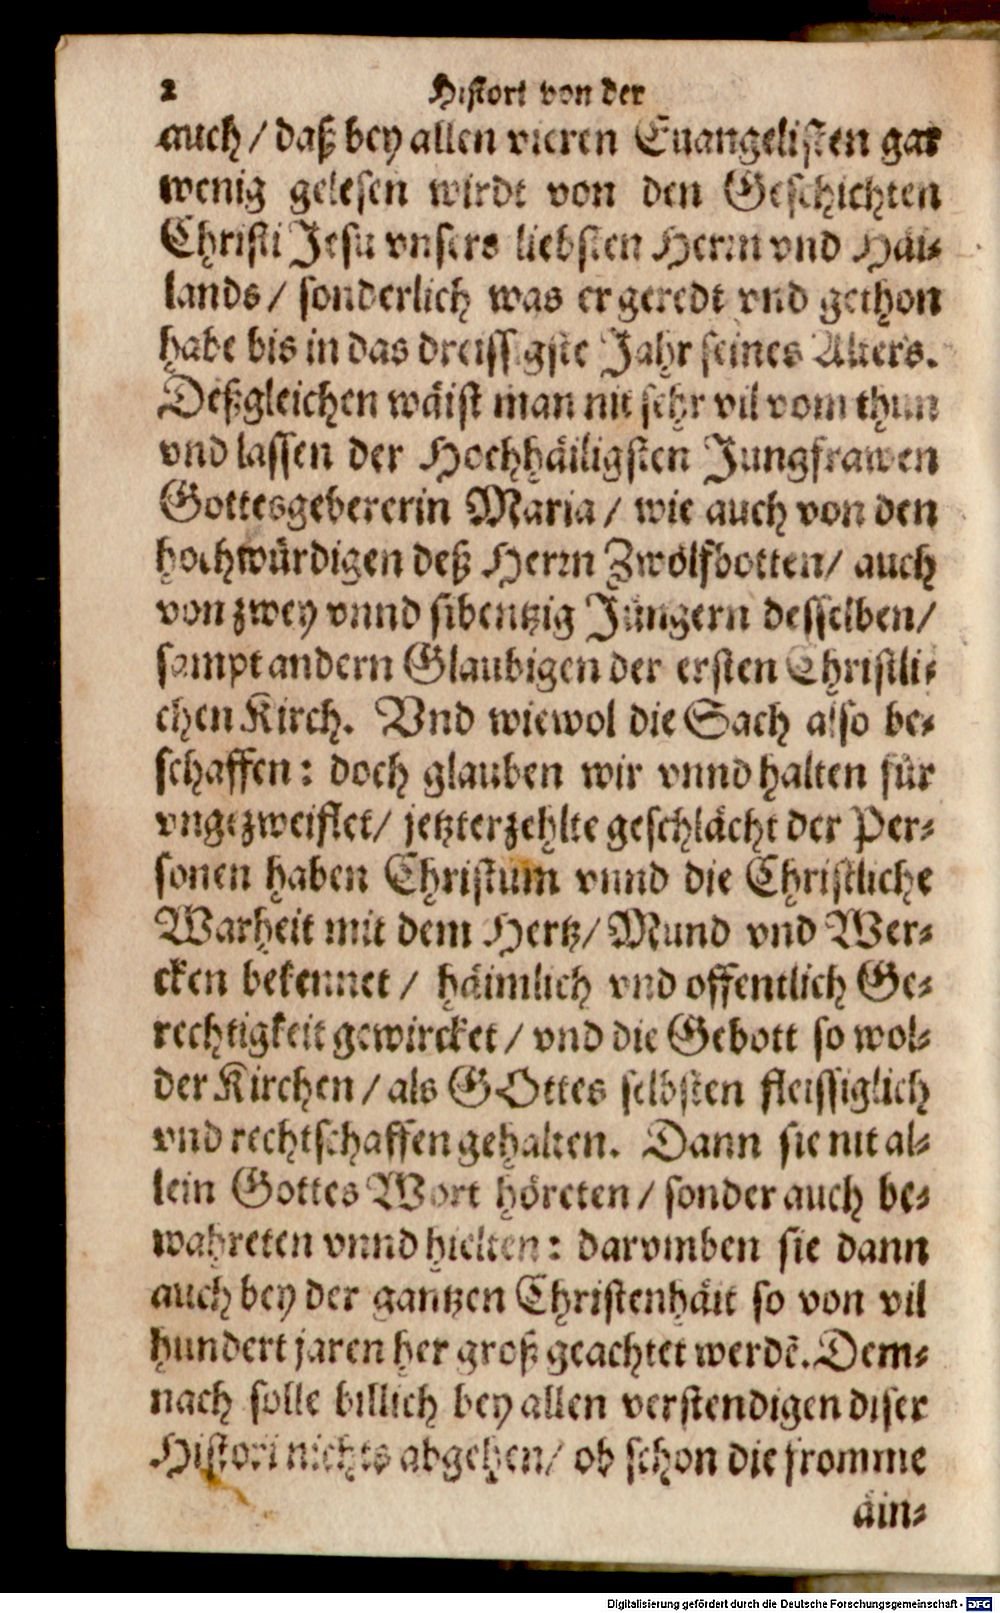 2 Histori von der
auch / daß bey allen vieren Euangelisten gar
wenig gelesen wirdt von den Geschichten
Christi Jesu vnsers liebsten Herrn vnd Häi-
lands / sonderlich was er geredt vnd gethon
habe bis in das dreissigste Jahr seines Alters.
Deßgleichen wäist man nit sehr vil vom thun
vnd lassen der Hochhäiligsten Jungfrawen
Gottesgebererin Maria / wie auch von den
hochwürdigen deß Herrn Zwölfbotten / auch
von zwey vnnd sibentzig Jüngern desselben /
sampt andern Glaubigen der ersten Christli-
chen Kirch. Vnd wiewol die Sach also be-
schaffen: doch glauben wir vnnd halten für
vngezweiflet / jetzterzehlte geschlächt der Per-
sonen haben Christum vnnd die Christliche
Warheit mit dem Hertz / Mund vnd Wer-
cken bekennet / häimlich vnd offentlich Ge-
rechtigkeit gewircket / vnd die Gebott so wol-
der Kirchen / als GOttes selbsten fleissiglich
vnd rechtschaffen gehalten. Dann sie nit al-
lein Gottes Wort höreten / sonder auch be-
wahreten vnnd hielten: darvmben sie dann
auch bey der gantzen Christenhäit so von vil
hundert jaren her groß geachtet werdẽ. Dem-
nach solle billich bey allen verstendigen diser
Histori nichts abgehen / ob schon die fromme
äin-
Digitalisierung gefördert durch die Deutsche Forschungsgemeinschaft - DFG